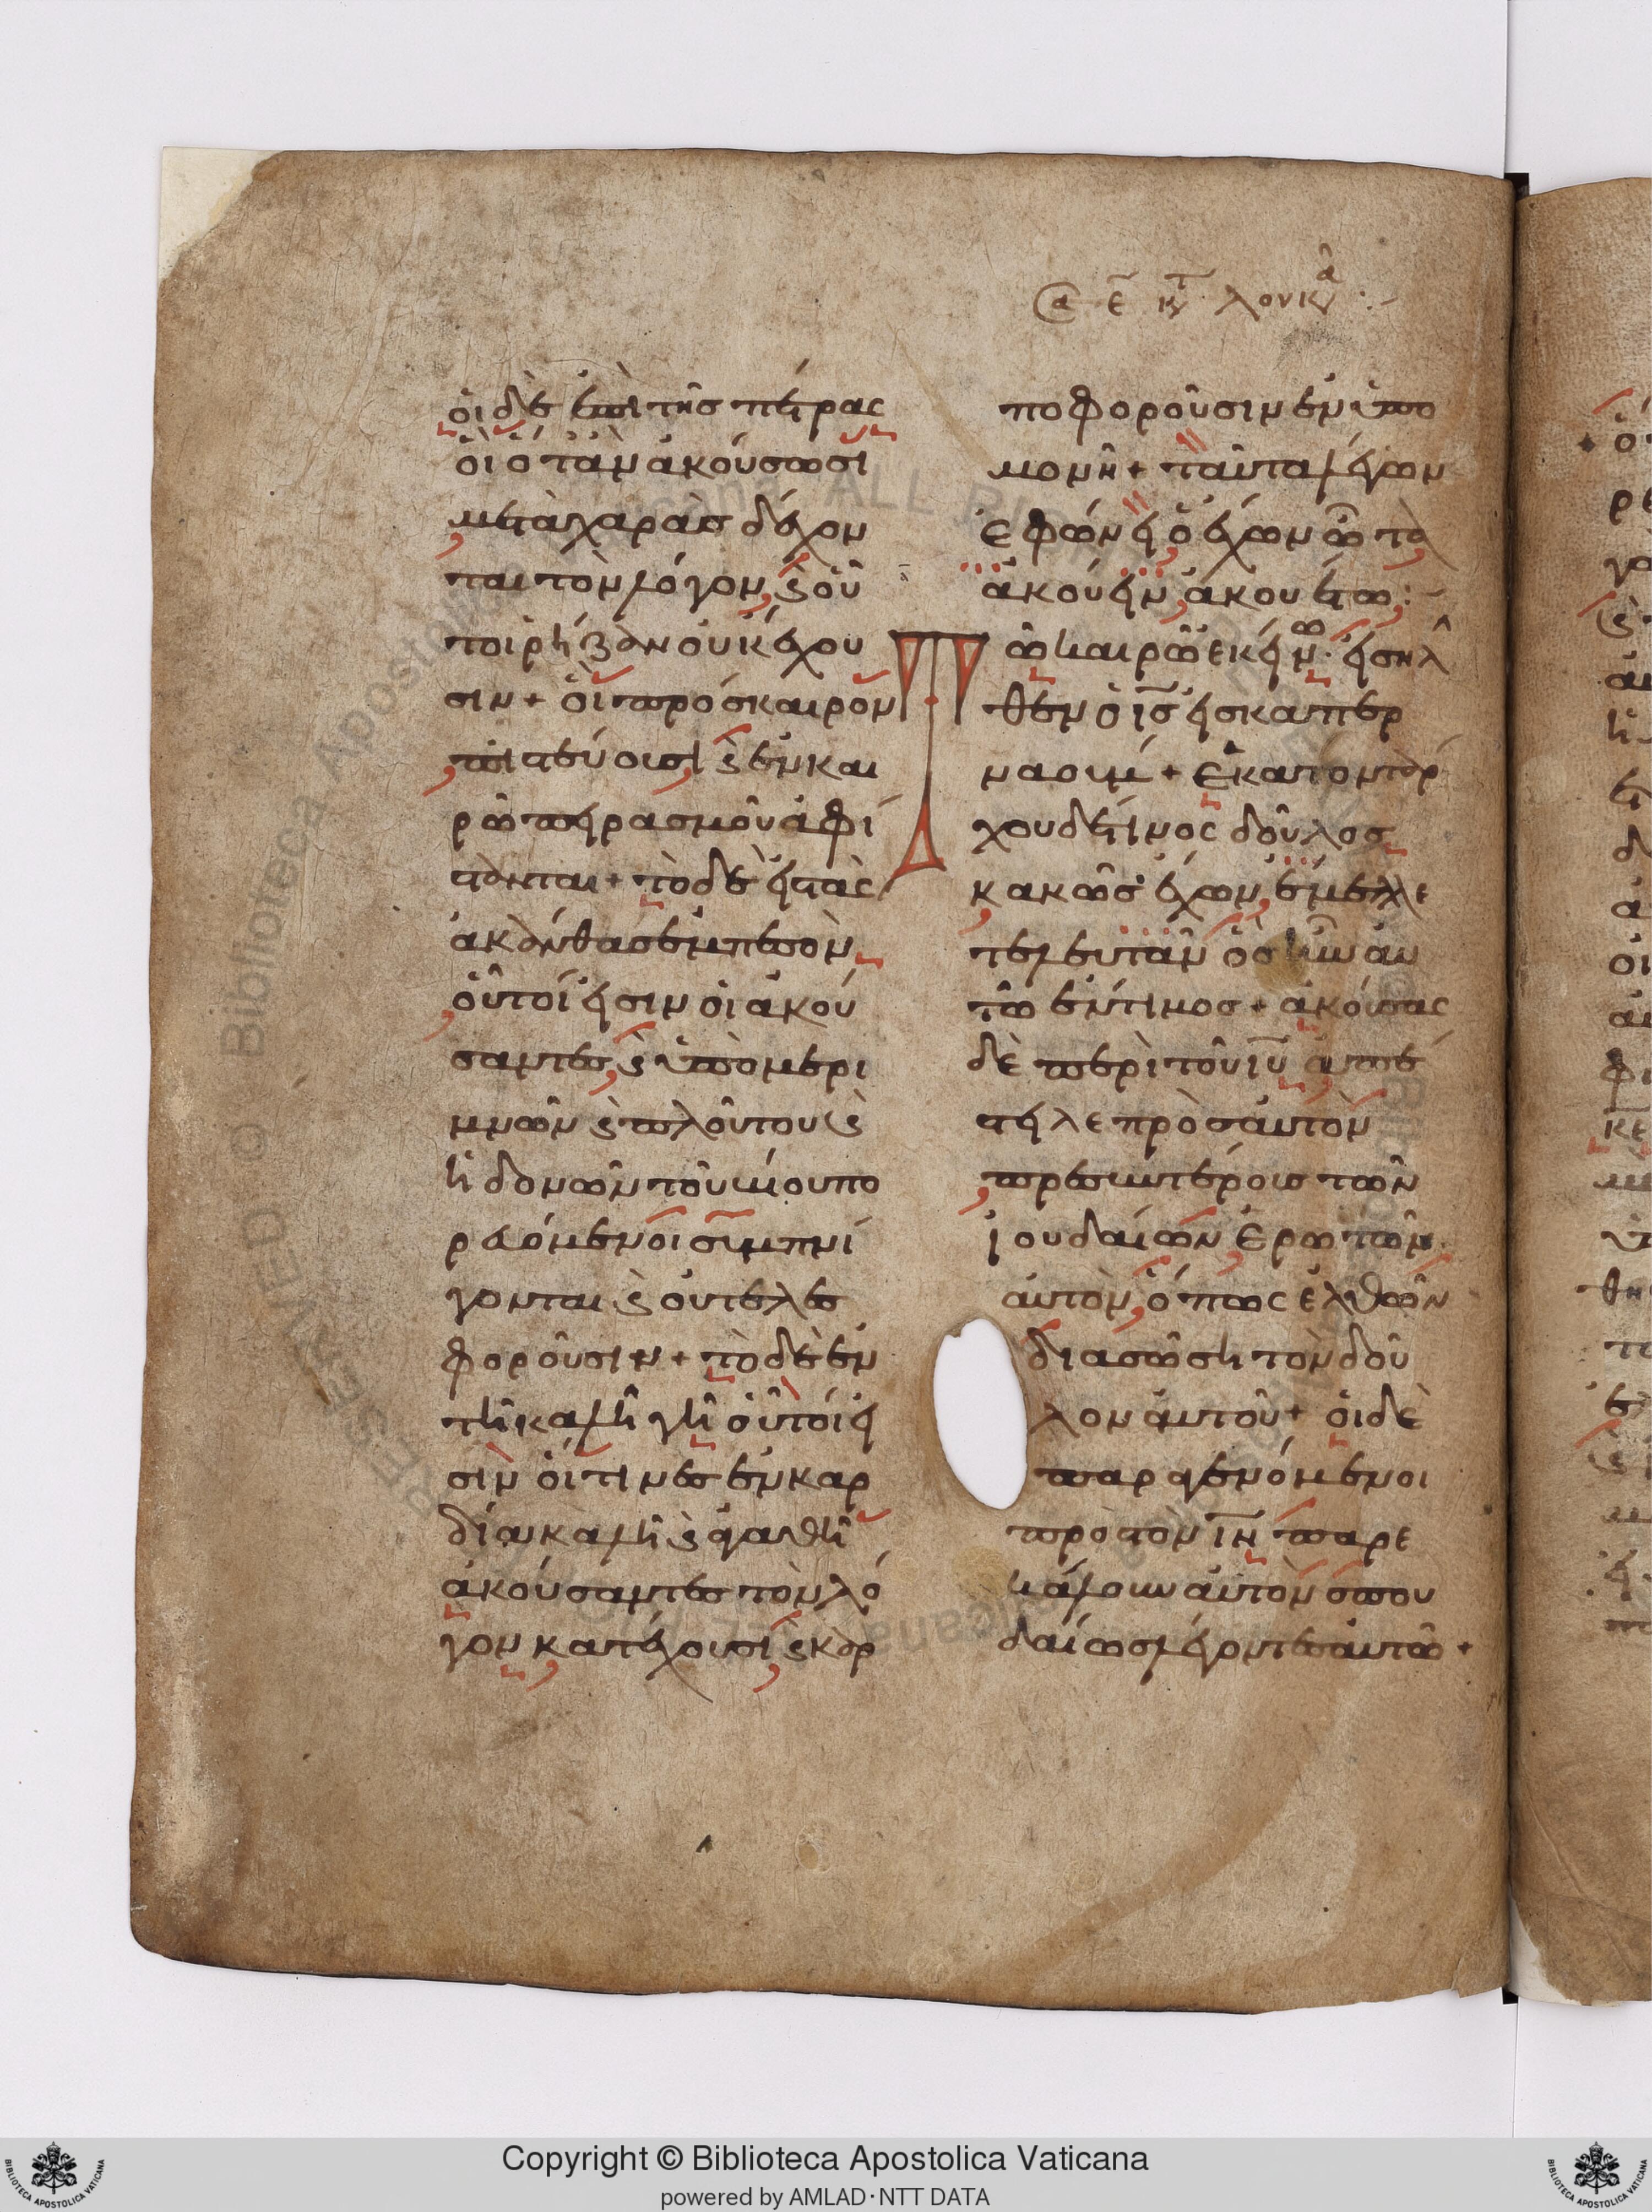 οἱ δὲ ἐπὶ τῆς πέτρας
οἳ ὅταν ἀκούσωσι
μετὰ χαρᾶς δέχον
ται τὸν λόγον, ϗ οὗ
τοι ῥίζαν οὐκ ἔχου
σιν + οἳ πρὸς καιρὸν
πιστεύουσι ϗ ἐν και
ρῶ πειρασμοῦ ἀφί
στανται + τὸ δὲ εἰς τὰς
ἀκάνθας ἐμπεσὸν
οὗτοί εἰσιν οἱ ἀκού
σαντες, ϗ ὑπὸ μερι
μνῶν ϗ πλούτου ϗ
ἡδονῶν τοῦ βίου πο
ρευόμενοι συμπνί
γονται ϗ οὐ τελες
φοροῦσιν + τὸ δὲ ἐν
τῆ καλῆ γῆ οὗτοί εἰ
σὶν οἵτινες ἐν καρ
δία καλῆ ϗ ἀγαθῆ
ἀκούσαντες τὸν λό
γον κατέχουσι, ϗ καρ
ποφοροῦσιν ἐν ὑπο
μονῆ + ταῦτα λέγων
ἐφώνει, ὁ ἔχων ὦτα
ἀκούειν ἀκουέτω :
Τῶ καιρῶ ἐκείνω. εἰσῆλ
θεν ὁ ις εἰς καπερ
ναουμ + Ἑκατοντάρ
χου δέ τινος δοῦλος
κακῶς ἔχων, ἔμελλε
τελευτᾶν ὃς ἦν αυ
τῶ ἔντιμος + ἀκούσας
δὲ περὶ τοῦ ιυ ἀπέ
στειλε πρὸς αὐτὸν
πρεσβυτέρους τῶν
ἰουδαίων, ἐρωτῶν
αὐτὸν, ὅπως ἐλθὼν
διασώση τὸν δοῦ
λον αὐτοῦ + οἱ δὲ
παραγενόμενοι
πρὸς τὸν ιν παρε
κάλουν αὐτὸν σπου
δαίως λέγοντες αὐτῶ +